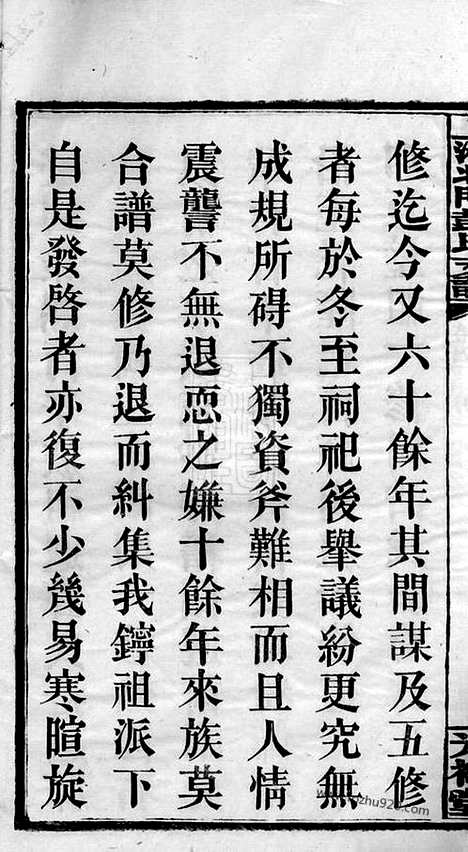 修迄今又六十餘年其間謀及五修
者每於冬至祠祀後舉議紛更究無
成規所碍不獨資斧難相而且人情
震讋不無退恧之嫌十餘年來族莫
合譜莫修乃退而糾集我鐸祖派下
自是發啓者亦復不少幾易寒暄旋